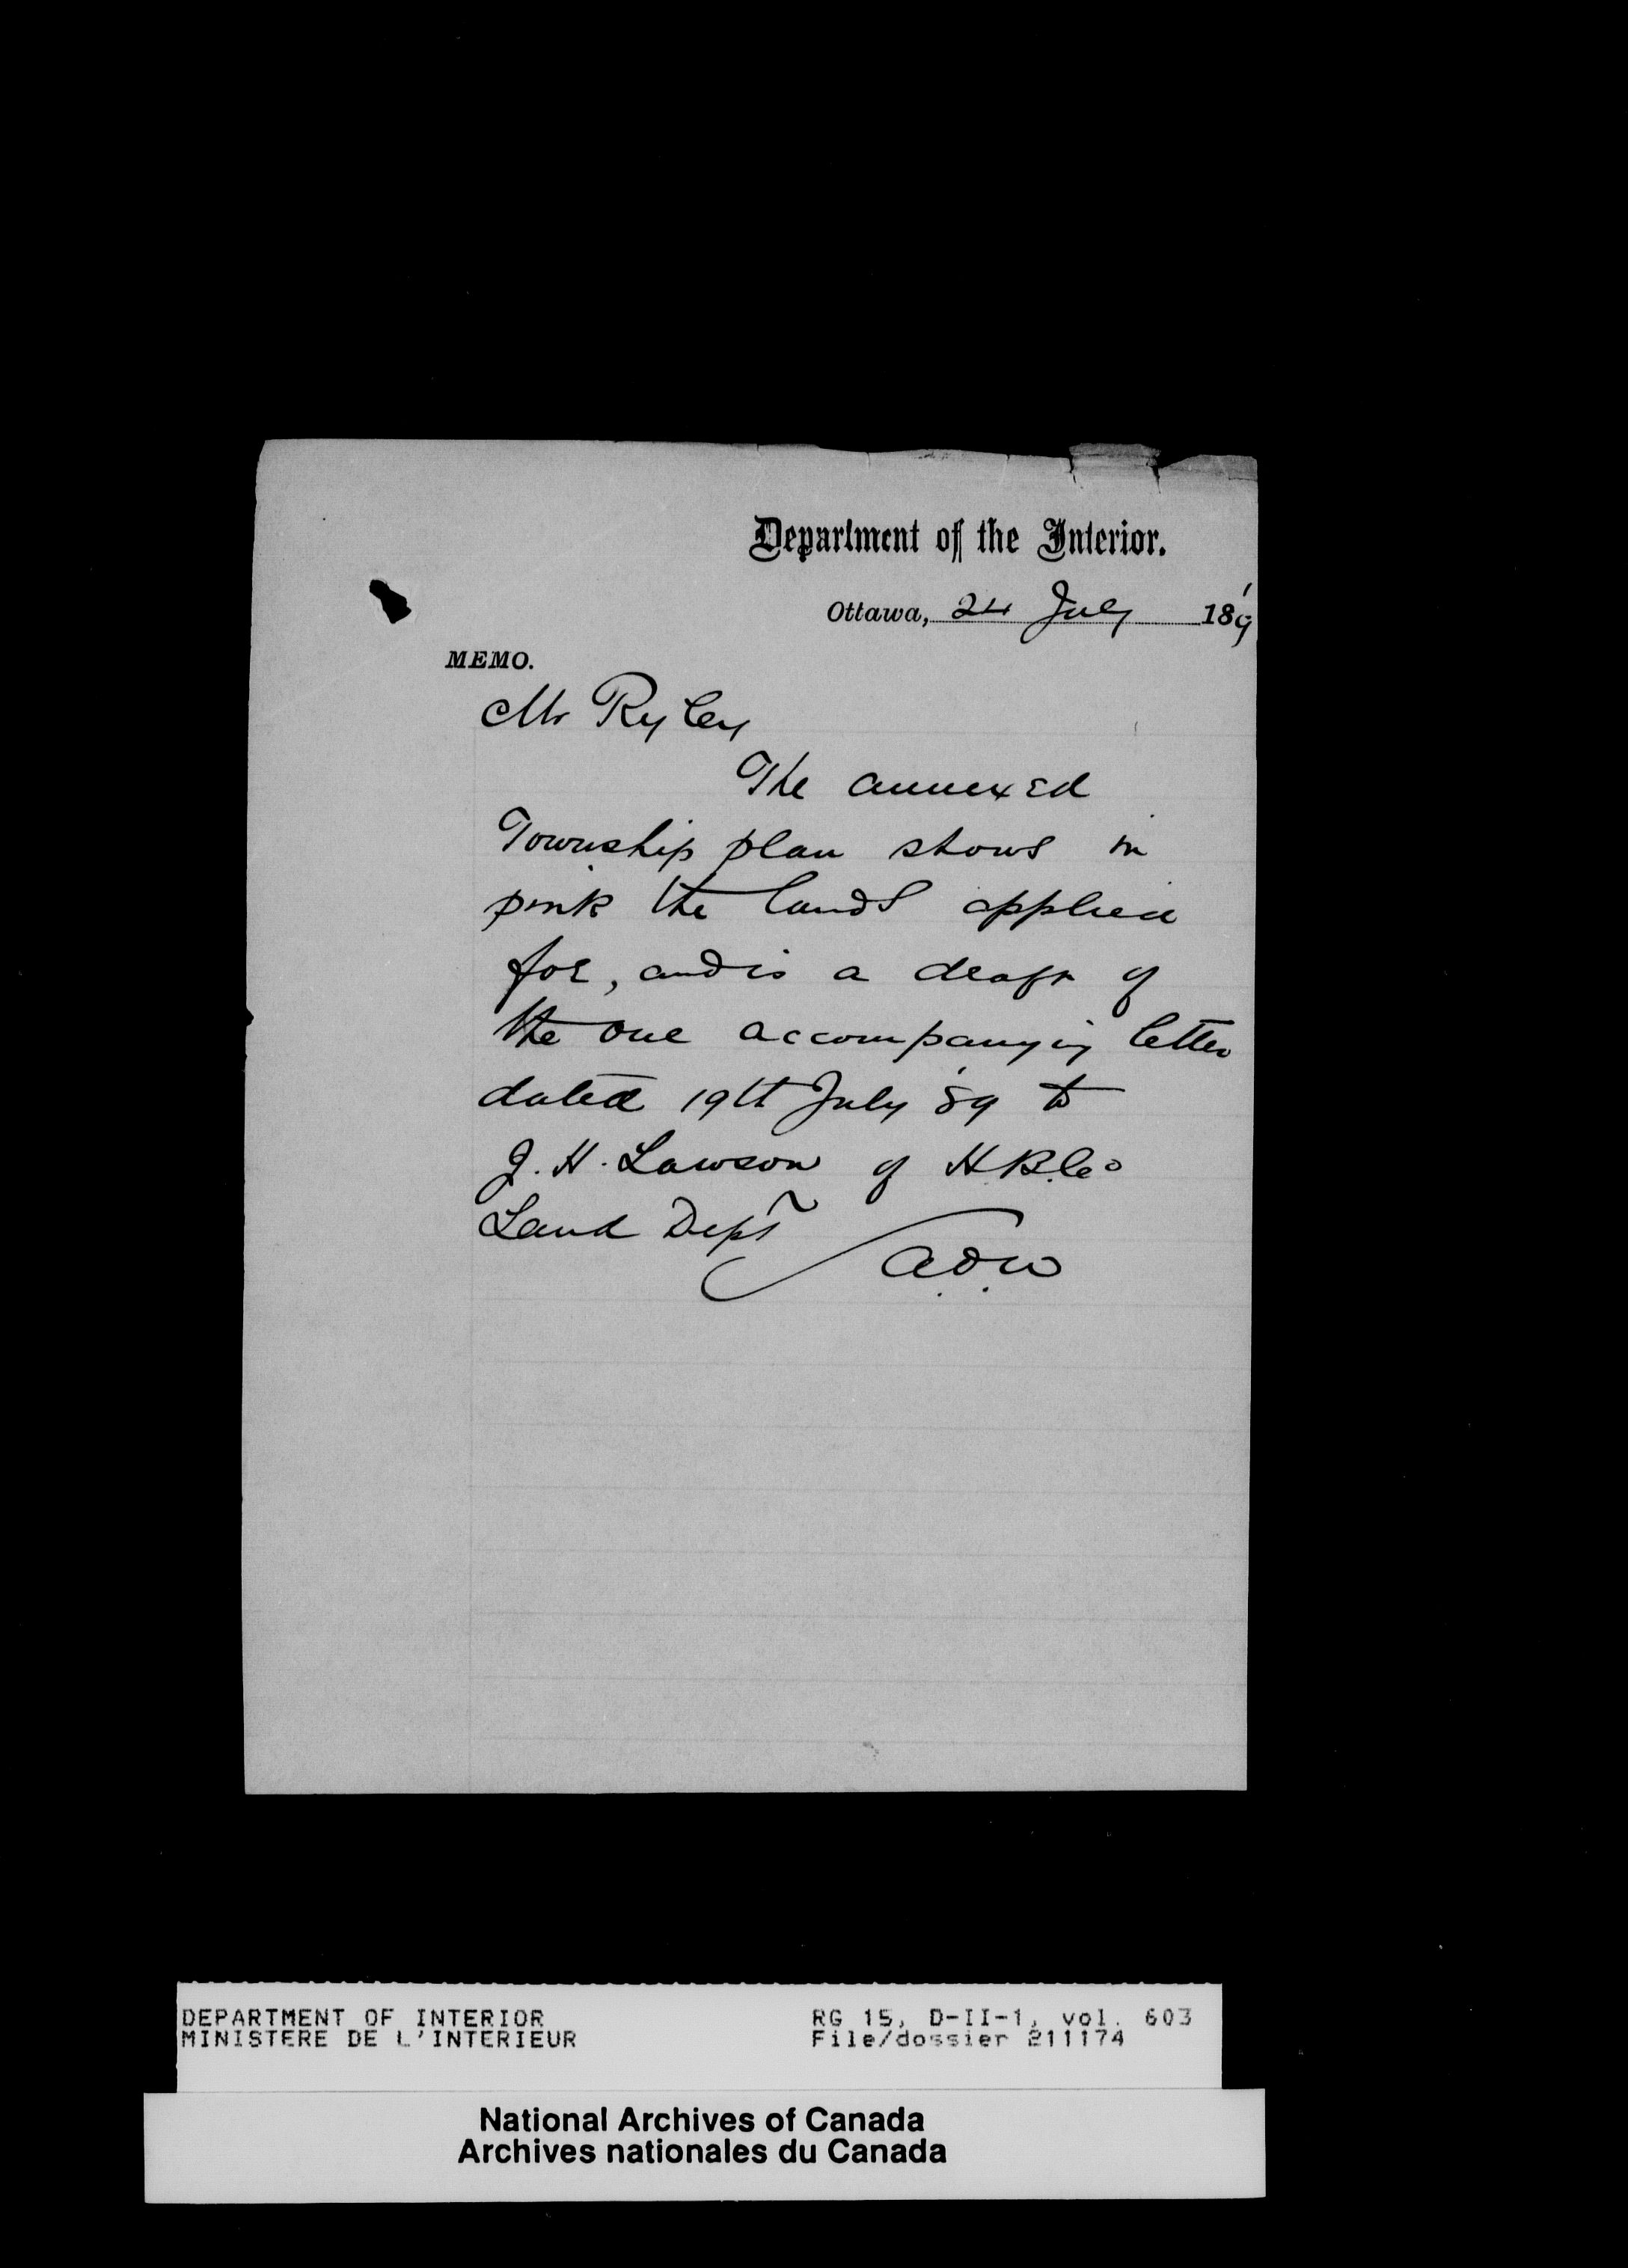 Department of the Interior.
Ottawa, 24 July 189
MEMO.
Mr Ryley
The annexed
Township plan shows in
pink the lands applied
for, and is a draft of
the one accompanying letter
dated 19th July '89 to
J. H. Lawson of H.B.Co
Land Dept
A.O.W
DEPARTMENT OF INTERIOR RG 15, D-II-1, vol. 603
MINISTERE DE L'INTERIEUR File/dossier 211174
National Archives of Canada
Archives nationales du Canada